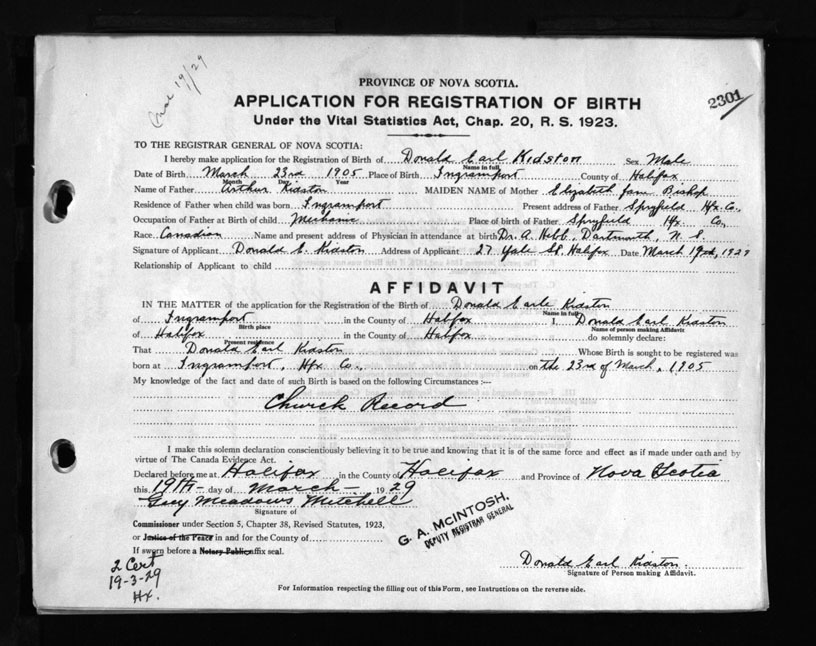 Mar 19/29
PROVINCE OF NOVA SCOTIA.
2301
APPLICATION FOR REGISTRATION OF BIRTH
Under the Vital Statistics Act, Chap. 20, R. S. 1923.
TO THE REGISTRAR GENERAL OF NOVA SCOTIA:
I hereby make application for the Registration of Birth of Donald Earl Kidston Sex Male
Name in full
Date of Birth March 23rd 1905 Place of Birth Ingramport County of Halifax
Month Day Year
Name of Father Arthur Kidston MAIDEN NAME of Mother Elizabeth Jane Bishop
Residence of Father when child was born Ingramport Present address of Father Spryfield Hfx. Co.,
Occupation of Father at Birth of child Mechanic Place of birth of Father Spryfield Hx. Co.,
Race Canadian Name and present address of Physician in attendance at birth Dr. A. Hebb, Dartmouth, N. S.
Signature of Applicant Donald E. Kidston Address of Applicant 27 Yale St. Halifax Date March 19th, 1929
Relationship of Applicant to child
AFFIDAVIT
IN THE MATTER of the application for the Registration of the Birth of Donald Earle Kidston
Name in full
of Ingramport in the County of Halifax I, Donald Earl Kidston
Birth place Name of person making Affidavit
of Halifax in the County of Halifax do solemnly declare:
Present residence
That Donald Earl Kidston Whose Birth is sought to be registered was
born at Ingramport, Hfx Co., on the 23rd of March, 1905
My knowledge of the fact and date of such Birth is based on the following Circumstances :—
Church Record
I make this solemn declaration conscientiously believing it to be true and knowing that it is of the same force and effect as if made under oath and by
virtue of The Canada Evidence Act.
Declared before me at Halifax in the County of Halifax and Province of Nova Scotia
this 19th day of March 1929
Guy Meadows Mitchell
Signature of
Commissioner under Section 5, Chapter 38, Revised Statutes, 1923,
or Justice of the Peace in and for the County of
If sworn before a Notary Public affix seal.
G. A. McINTOSH,
DEPUTY REGISTRAR GENERAL
2 Cert
19-3-29
Hx.
Donald Earl Kidston.
Signature of Person making Affidavit.
For Information respecting the filling out of this Form, see Instructions on the reverse side.